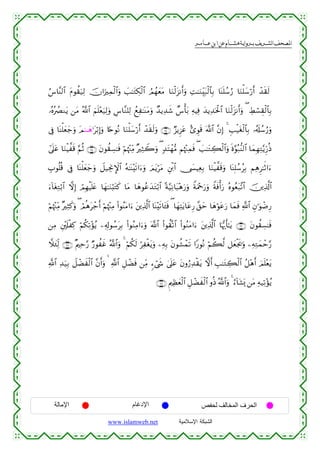 المصحف الشريف برواية هشام عن ابن عامر
لَقَدْ أَرْسَلْنَا رُسُلَنَا بِٱلْبَيِّنَٰتِ وَأَنزَلْنَا مَعَهُمُ ٱلْكِتَٰبَ وَٱلْمِيزَانَ لِيَقُومَ ٱلنَّاسُ
بِٱلْقِسْطِ وَأَنزَلْنَا ٱلْحَدِيدَ فِيهِ بَأْسٌ شَدِيدٌ وَمَنَٰفِعُ لِلنَّاسِ وَلِيَعْلَمَ ٱللَّهُ مَن يَنصُرُهُۥ
وَرُسُلَهُۥ بِٱلْغَيْبِ إِنَّ ٱللَّهَ قَوِىٌّ عَزِيزٌ وَلَقَدْ أَرْسَلْنَا نُوحًا وَإِبْرَٰهَٰمَ وَجَعَلْنَا فِى
ذُرِّيَّتِهِمَا ٱلنُّبُوَّةَ وَٱلْكِتَٰبَ فَمِنْهُم مُّهْتَدٍ وَكَثِيرٌ مِّنْهُمْ فَٰسِقُونَ ثُمَّ قَفَّيْنَا عَلَىٰٓ
ءَاثَٰرِهِم بِرُسُلِنَا وَقَفَّيْنَا بِعِيسَى ٱبْنِ مَرْيَمَ وَءَاتَيْنَٰهُ ٱلْإِنجِيلَ وَجَعَلْنَا فِى قُلُوبِ
ٱلَّذِينَ ٱتَّبَعُوهُ رَأْفَةً وَرَحْمَةً وَرَهْبَانِيَّةً ٱبْتَدَعُوهَا مَا كَتَبْنَٰهَا عَلَيْهِمْ إِلَّا ٱبْتِغَآءَ
رِضْوَٰنِ ٱللَّهِ فَمَا رَعَوْهَا حَقَّ رِعَايَتِهَا فَـَٔاتَيْنَا ٱلَّذِينَ ءَامَنُوا۟ مِنْهُمْ أَجْرَهُمْ وَكَثِيرٌ مِّنْهُمْ
فَٰسِقُونَ يَٰٓأَيُّهَا ٱلَّذِينَ ءَامَنُوا۟ ٱتَّقُوا۟ ٱللَّهَ وَءَامِنُوا۟ بِرَسُولِهِۦ يُؤْتِكُمْ كِفْلَيْنِ مِن
رَّحْمَتِهِۦ وَيَجْعَل لَّكُمْ نُورًا تَمْشُونَ بِهِۦ وَيَغْفِرْ لَكُمْ وَٱللَّهُ غَفُورٌ رَّحِيمٌ لِّئَلَّا
يَعْلَمَ أَهْلُ ٱلْكِتَٰبِ أَلَّا يَقْدِرُونَ عَلَىٰ شَىْءٍ مِّن فَضْلِ ٱللَّهِ وَأَنَّ ٱلْفَضْلَ بِيَدِ ٱللَّهِ
يُؤْتِيهِ مَن يَشَآءُ وَٱللَّهُ ذُو ٱلْفَضْلِ ٱلْعَظِيمِ
الحرف المخالف لحفص الإدغام الإمالة
الشبكة الإسلامية www.islamweb.net